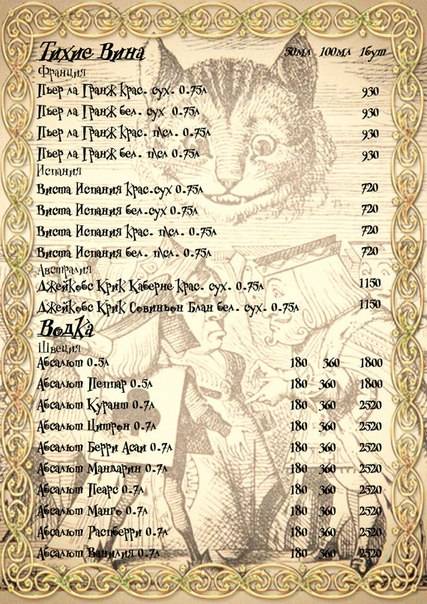 Тихие Вина 50мл 100мл 1бут
Франция
Пьер ла Гранж крас. сух. 0.75л 930
Пьер ла Гранж бел. сух 0.75л 930
Пьер ла Гранж крас. п\сл. 0.75л 930
Пьер ла Гранж бел. п\сл 0.75л 930
Испания
Виста Испания крас.сух 0.75л 720
Виста Испания бел.сух 0.75л 720
Виста Испания крас. п\сл. 0.75л 720
Виста Испания бел. п\сл 0.75л 720
Австралия
Джейкобс Крик Каберне крас. сух. 0.75л 1150
Джейкобс Крик Совиньон Блан бел. сух. 0.75л 1150
Водка
Швеция
Абсалют 0.5л 180 360 1800
Абсалют Пеппар 0.5л 180 360 1800
Абсалют Курант 0.7л 180 360 2520
Абсалют Цитрон 0.7л 180 360 2520
Абсалют Берри Асаи 0.7л 180 360 2520
Абсалют Мандарин 0.7л 180 360 2520
Абсалют Пеарс 0.7л 180 360 2520
Абсалют Манго 0.7л 180 360 2520
Абсалют Распберри 0.7л 180 360 2520
Абсалют Ванилия 0.7л 180 360 2520